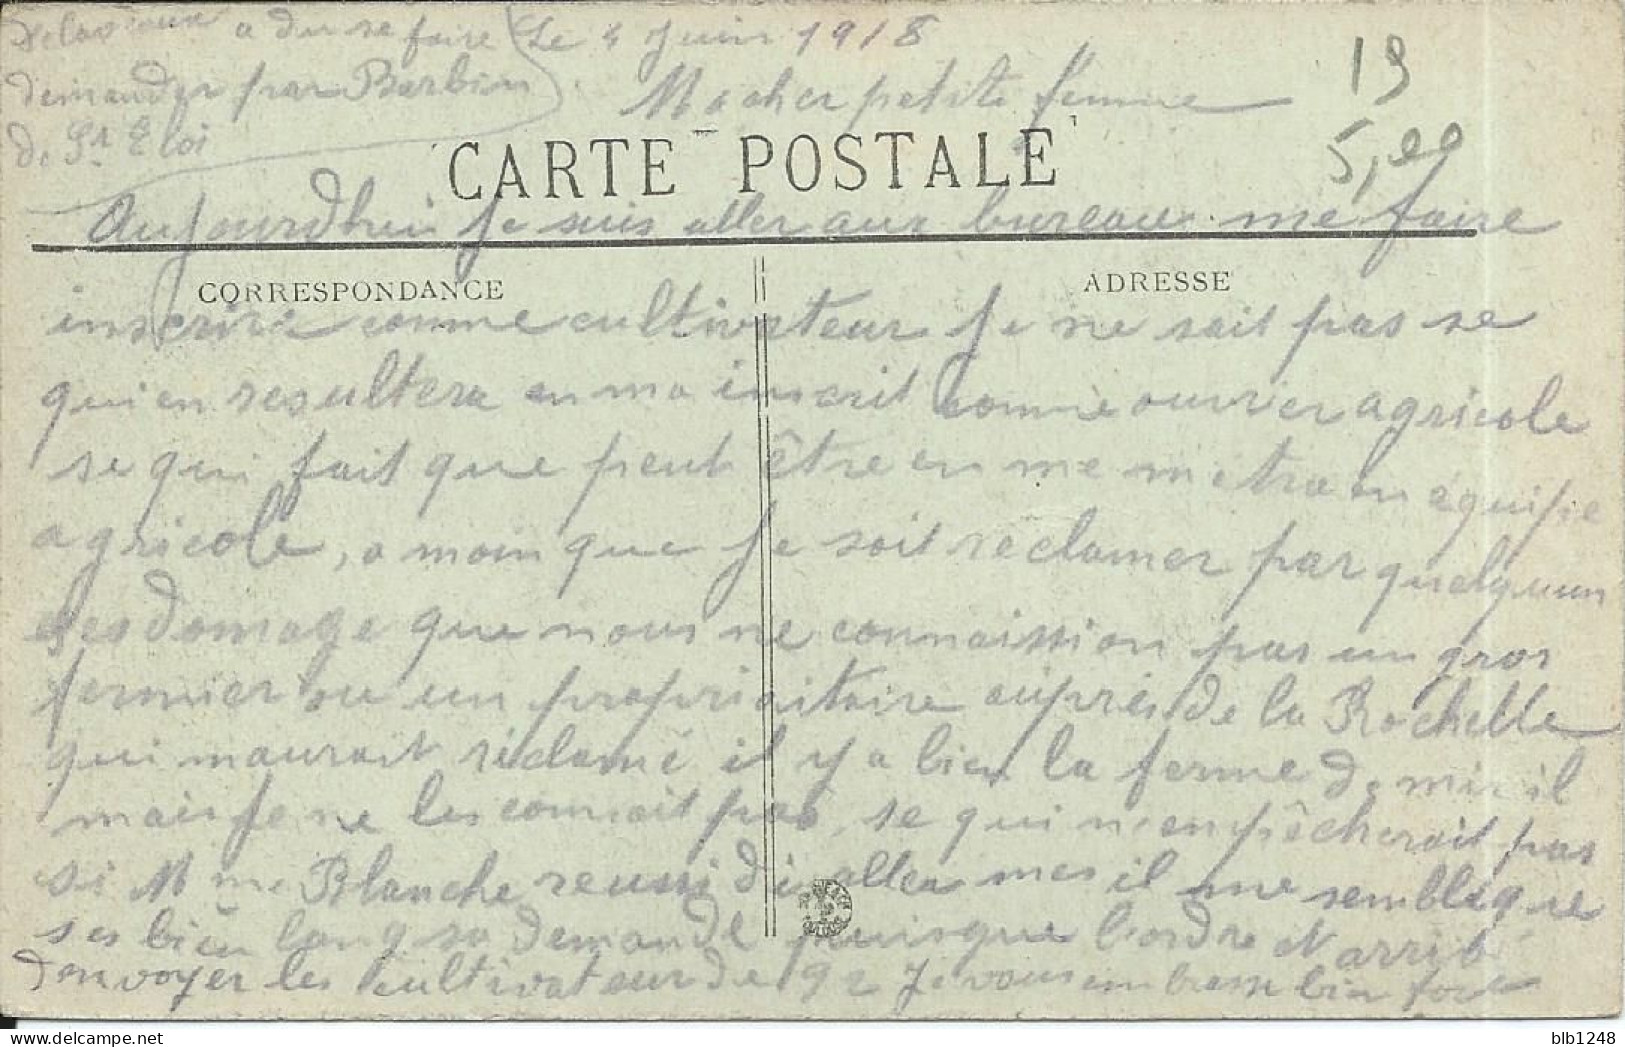 a du se faire
demander par Barbin
de St Eloi
Le 4 Juin 1918
Ma cher petite femme
19
5,00
CARTE POSTALE
Aujourdhui je suis aller aux bureau me faire
CORRESPONDANCE
ADRESSE
inscrire comme cultivateur je ne sait pas se
qui en resultera on ma inscrit comme ouvrier agricole
se qui fait que peut être on me metra en équipe
agricole, a moin que je soit reclamer par quelquun
ses domage que nous ne connaission pas un gros
fermier ou un propriaitaire auprès de la Rochelle
qui maurait réclamé il y a bien la ferme de
mais je ne les connait pas, se qui n'empêcherait pas
si Mme Blanche reussi dis aller mes il me semble que
ses bien long sa demande puisque l'ordre et arrib
denvoyer les cultivateur de 92 Je vous embrasse bien fort
delcampe.net
blb1248